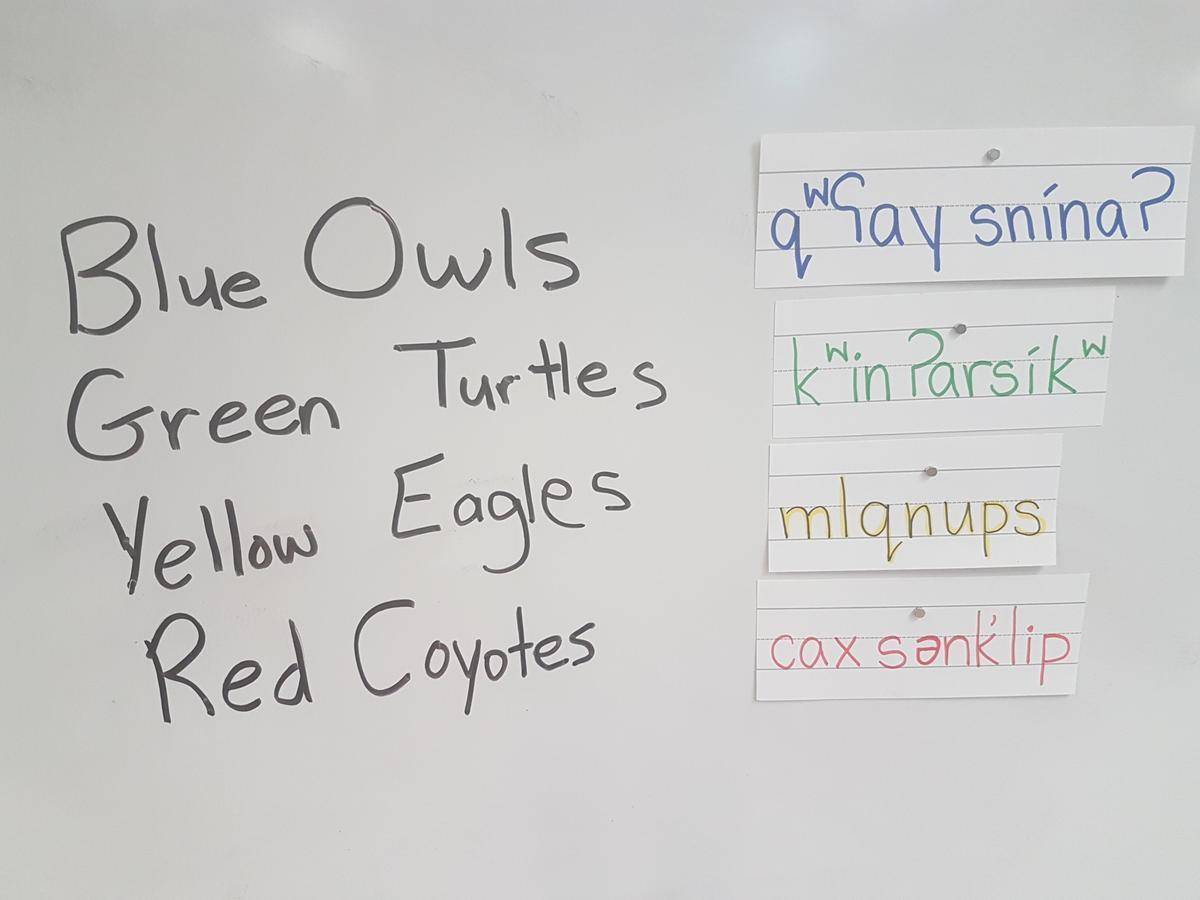 Blue Owls
qʷʕay snínaʔ
Green Turtles
kʷin ʔarsíkʷ
Yellow Eagles
mlqnups
Red Coyotes
cax sənk̓lip